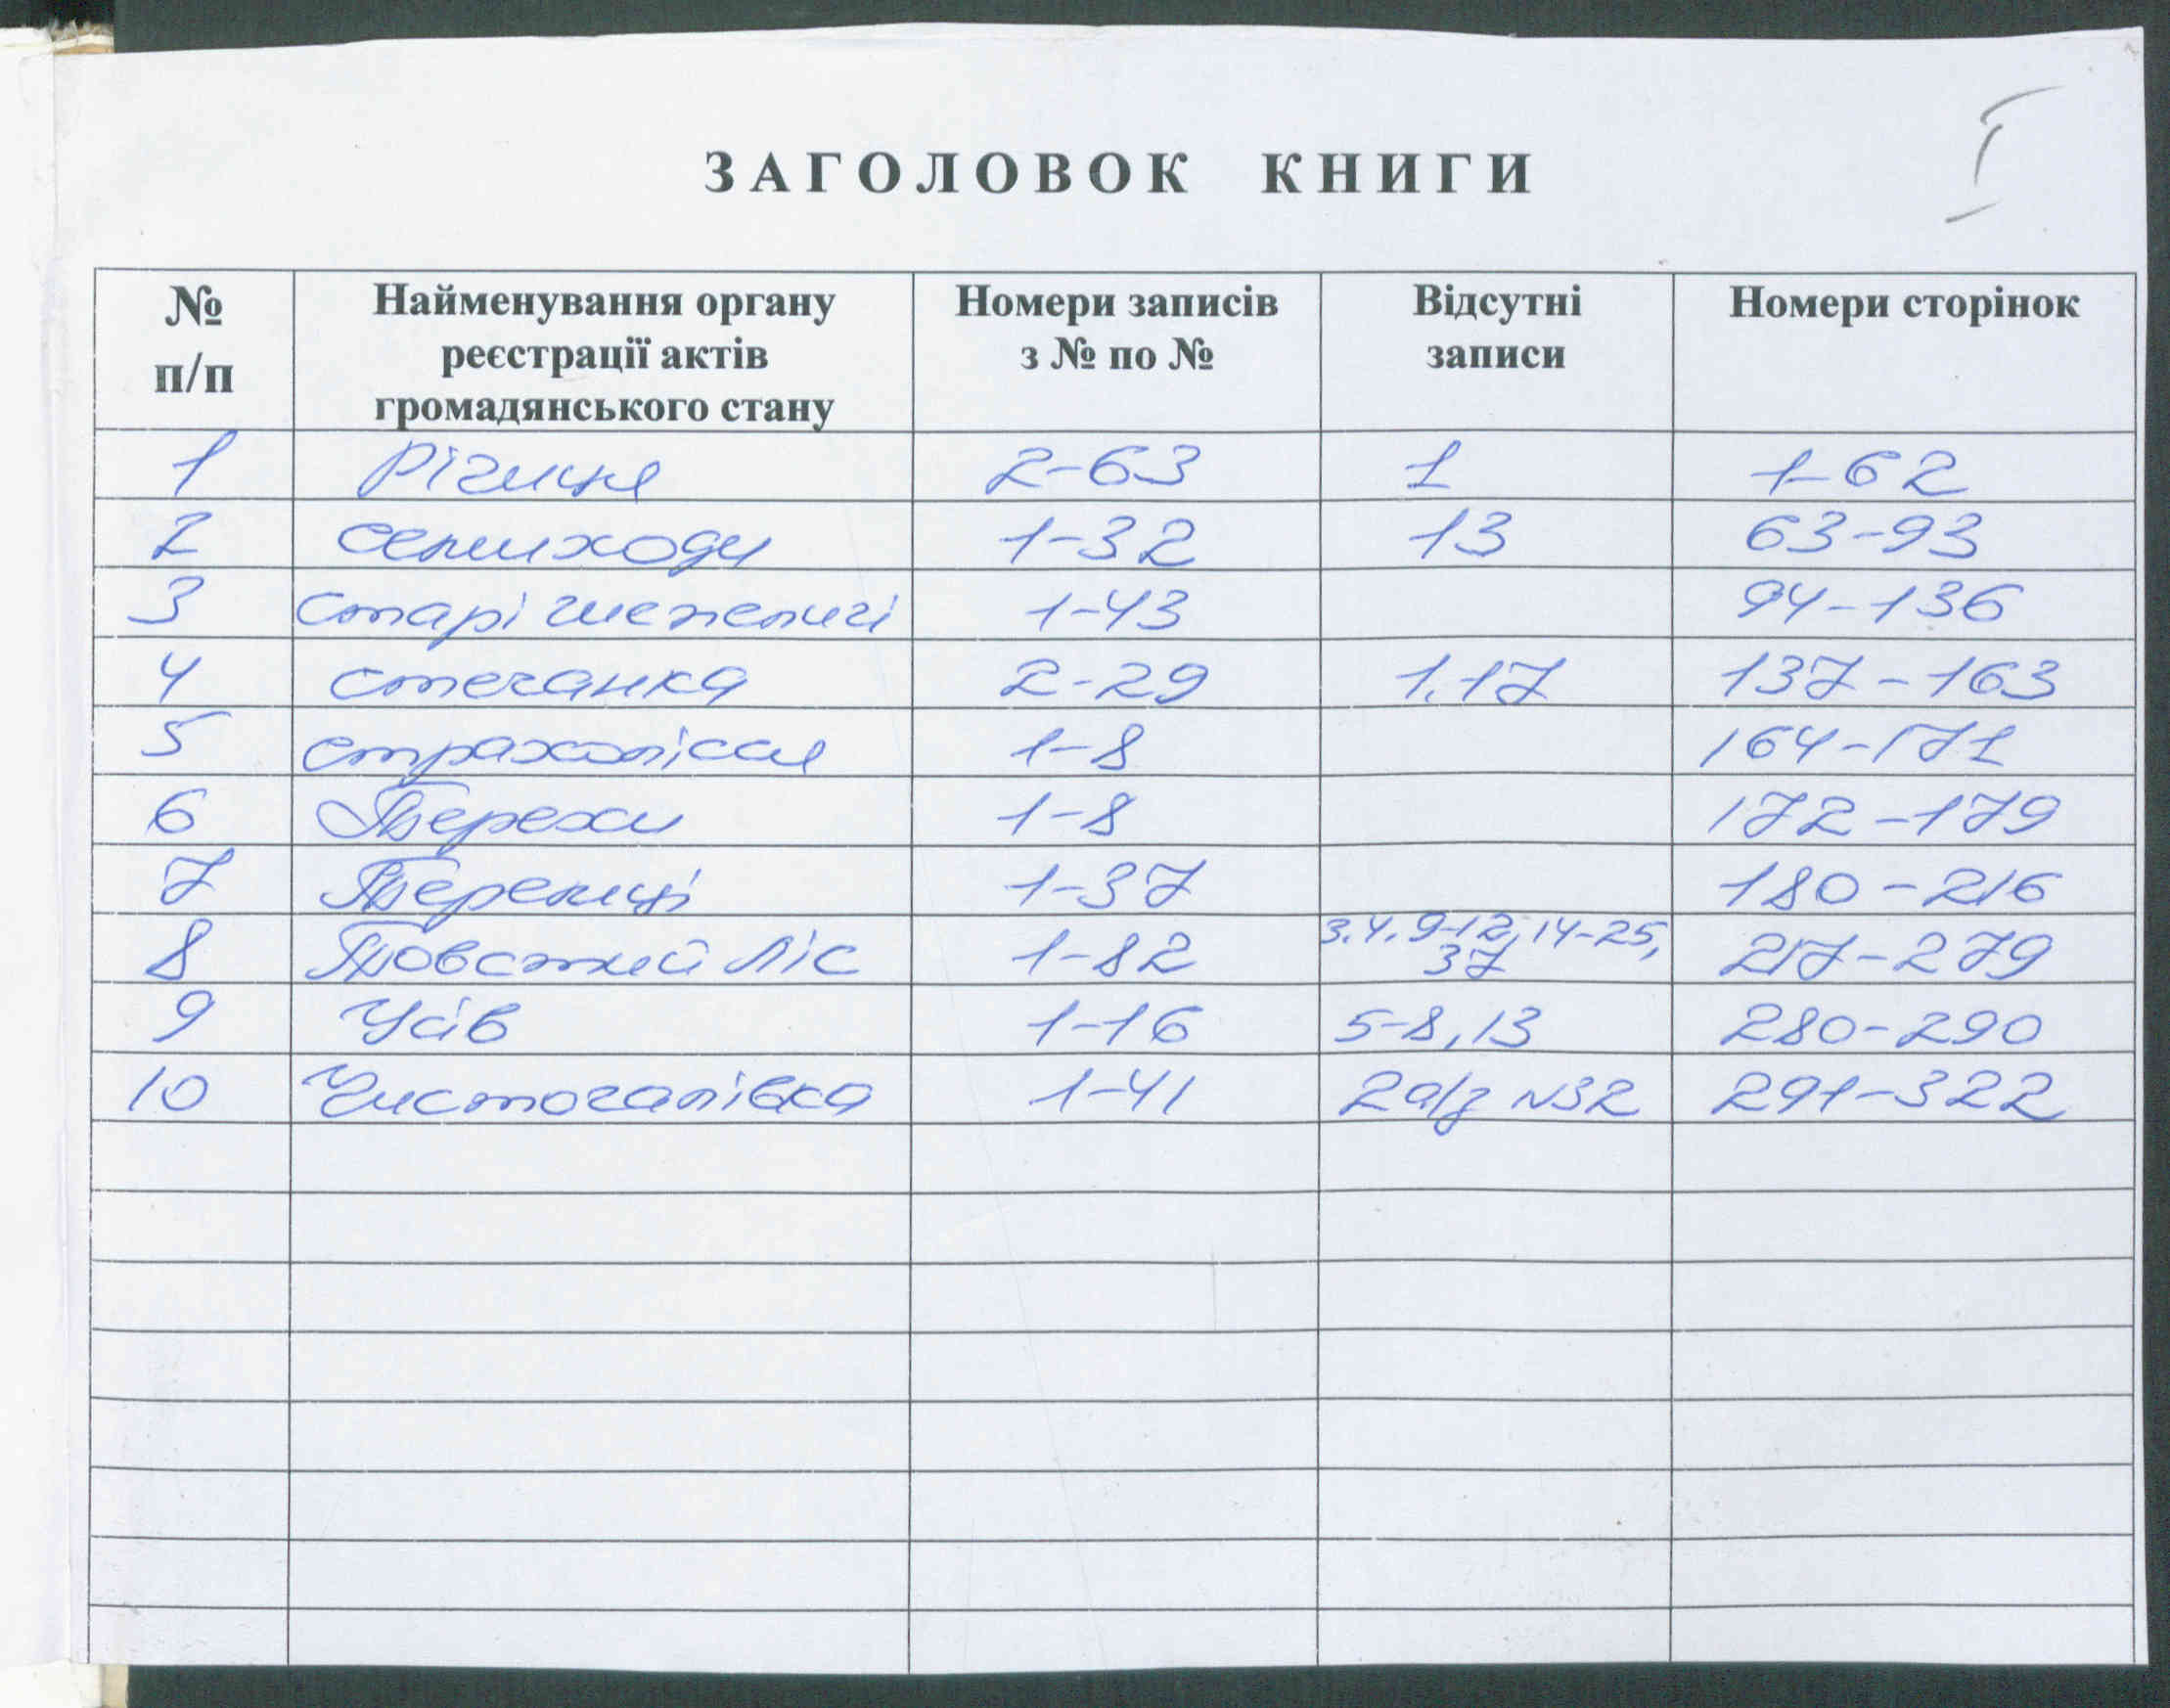 I
ЗАГОЛОВОК КНИГИ
№ п/п Найменування органу реєстрації актів громадянського стану Номери записів з № по № Відсутні записи Номери сторінок
1 Річиця 2-63 1 1-62
2 Семиходи 1-32 13 63-93
3 Старі Шепеличі 1-43 94-136
4 Стечанка 2-29 1.17 137-163
5 Страхолісся 1-8 164-171
6 Терехи 1-8 172-179
7 Теремці 1-37 180-216
8 Товстий Ліс 1-82 3.4.9-12,14-25, 37 217-279
9 Усів 1-16 5-8,13 280-290
10 Чистогалівка 1-41 2а/з №32 291-322